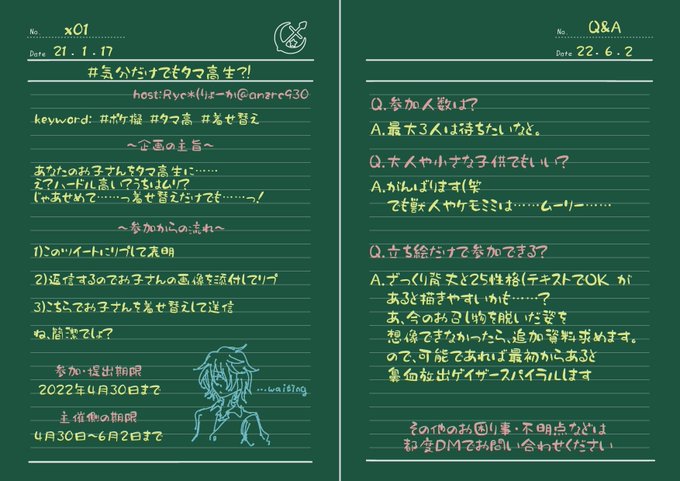 No. x01
Date 21.1.17
#気分だけでもタマ高生?!
host:Ryc*(りょーか@anzrc930
keyword: #ポケ擬 #タマ高 #着せ替え
～企画の主旨～
あなたのお子さんをタマ高生に……
え?ハードル高い?うちはムリ?
じゃあせめて……っ着せ替えだけでも……っ!
～参加からの流れ～
1)このツイートにリプして表明
2)返信するのでお子さんの画像を添付してリプ
3)こちらでお子さんを着せ替えして送信
ね、簡潔でしょ?
参加・提出期限
2022年4月30日まで
主催側の期限
4月30日～6月2日まで
…waiting
No. Q&A
Date 22.6.2
Q.参加人数は?
A.最大3人は待ちたいなと。
Q.大人や小さな子供でもいい?
A.がんばります(笑
でも獣人やケモミミは……ムーリー……
Q.立ち絵だけで参加できる?
A.ざっくり背丈と25性格(テキストでOK が
あると描きやすいかも……?
あ、今のお召し物を脱いだ姿を
想像できなかったら、追加資料求めます。
ので、可能であれば最初からあると
鼻血放出ゲイザースパイラルします
その他のお困り事・不明点などは
都度DMでお問い合わせください